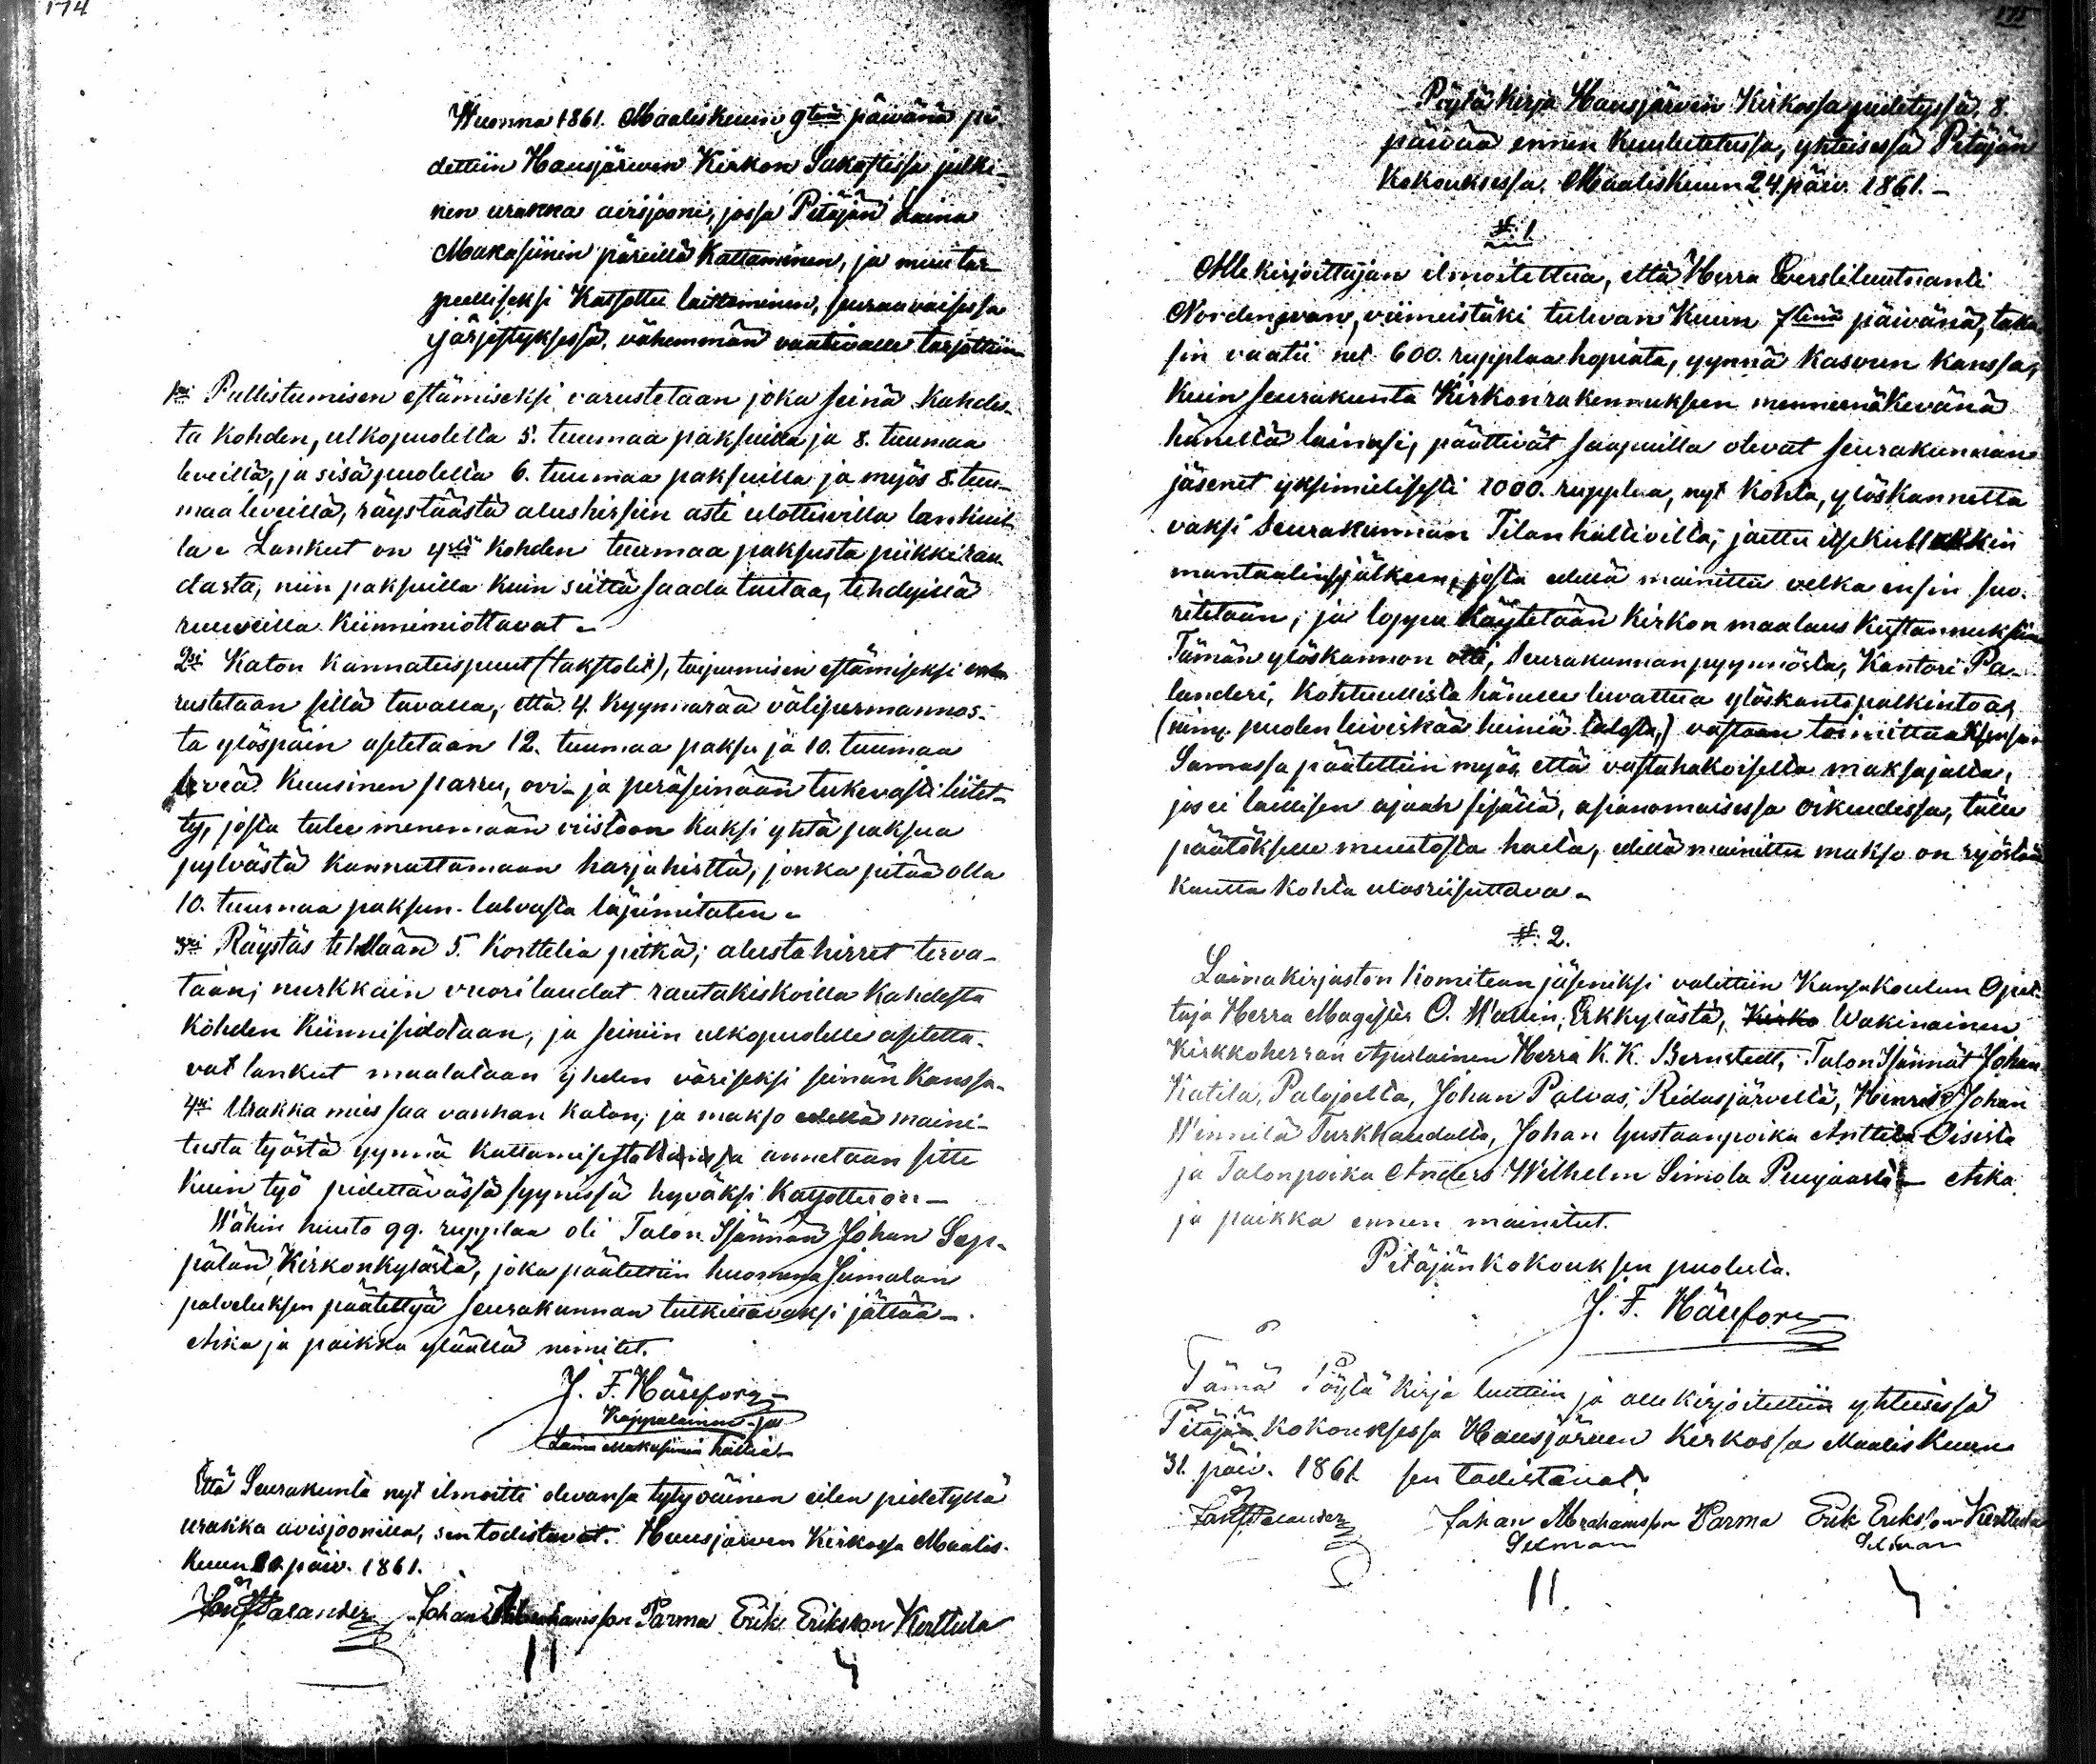 174
Wuonna 1861. Maaliskuun 9tenä päivänä pi-
dettiin Hausjärwen Kirkon Sakastissa julki-
nen urakka auvsjooni, jossa Pitäjän Laina
Makasiinin päreillä Kattaminen, ja muu tar-
peelliseksi Katsottu laittaminen, seuraavaisessa
järjestyksessä, vähemmän vaativalle tarjottiin
1ksi Pullistumisen estämiseksi varustetaan joka seinä Kahdes-
ta kohden, ulkopuolella 5. tuumaa paksuilla ja 8. tuumaa
leveillä, ja sisäpuolella 6. tuumaa paksuilla ja myös 8. tuu-
maa leveillä, räystäästä alushirsiin asti ulottuvilla lankuil-
la. Lankut on kohden tuumaa paksusta piikkirau-
dasta, niin paksuilla kuin siittä saada taitaa, tehdyillä
ruuveilla kiinnimiottavat.
2si Katon kannatuspuut (takstolit), taipumisen estämiseksi va-
rustetaan sillä tavalla, että 4. kyynärää välipermannos-
ta ylöspäin asetetaan 12. tuumaa paksu ja 10. tuumaa
leveä kuusinen parru, ovi- ja peräseinään tukevasti liitet-
ty, josta tulee menemään viistoon kaksi yhtä paksua
pylvästä kannattamaan harjahirttä, jonka pitää olla
10. tuumaa paksun latvasta läpimitaten.
3si Räystäs tehdään 5. Korttelia pitkä; alustahirret terva-
taan; nurkkain vuorilaudat rautakiskoilla kahdesta
kohden kiinnisidotaan, ja seiniin ulkopuolelle asetetta-
vat lankut maalataan yhden väriseksi seinän kanssa.
4si Urakka mies saa vanhan katon; ja makso edellä maini-
tusta työstä ynnä kattamisesta annetaan sitte
kuin työ pidettävässä syynissä hyväksi katsottu on —
Wähin huuto 99. ruplaa oli Talon Isännän Johan Sep-
pälän Kirkonkylästä, joka päätettiin huomena Jumalan
palveluksen päätettyä seurakunnan tutkittavaksi jättää —.
Aika ja paikka ylläällä nimitet.
J. F. Hällfors
Kappalainen ja
Laina Makasiinin hältiä
Että Seurakunta nyt ilmoitti olevansa tytyväinen eilen pidetyllä
urakka avisjoonilla, sen todistavat. Hausjärwen Kirkossa Maalis-
kuun 10. päiv. 1861.
Palander Johan Abrahamsson Parma Erik Eriksson Kerttula
175
Pöytäkirja Hausjärwin Kirkossa pidetyssä, 8.
päivää ennen kuulutetussa, yhteisessä Pitäjän
kokouksessa. Maaliskuun 24. päiv. 1861. —
§. 1.
Allekirjoittajan ilmoitettua, että Herra Everstiluutnanti
Nordensvan, viimeistäki tulevan kuun 7tenä päivänä, taka-
sin vaatii ne 600. rupplaa hopiata, yynnä kasvun kanssa,
kuin seurakunta Kirkonrakennuksen mennennä kevänä
häneltä lainasi, päättivät saapuilla olevat seurakunnan
jäsenet yksimielisesti 1000. rupplaa, nyt kohta, ylöskannetta-
vaksi Seurakunnan Tilanhaltivilta, jaettu itsekullekkin
mantaalinsa jälkeen, josta edellä mainittu velka ensin suo-
ritetaan; ja loppu käytetään kirkon maalaus kustannuksiin
Tämän ylöskannon otti, Seurakunnan pyynnöstä, Kantori Pa-
landeri, kohtuullista hänelle luvattua ylöskantopalkintoa,
(nimy. puolen leiviskää heiniä talosta,) vastaan toimittaaksensa
Samassa päätettiin myös, että vastahakoiselta maksajalta,
jos ei laillisen ajaan sisällä, asianomaisessa oikeudessa, tälle
päätökselle muutosta haeta, edellä mainittu makso on ryöstön
kautta kohta ulosriisuttava.
§. 2.
Lainakirjaston Komitean jäseniksi valittiin Kansakoulun Opet-
taja Herra Magister O. Wallin, Erkkylästä, Wakinainen
Kirkkoherran Apulainen Herra K. K. Bernstedt, Talon Isännät Johan
Katila, Palojoelta, Johan Palvas, Ridasjärveltä, Henrik Johan
Winnilä Turkhaudalta, Johan Gustaanpoika Anttila Oisista
ja Talonpoika Anders Wilhelm Simola Puujaasta — Aika
ja paikka ennen mainitut.
Pitäjänkokouksen puolesta.
J. F. Hällfors
Tämä Pöytäkirja luettiin ja allekirjoitettiin yhteisessä
Pitäjän kokouksessa Hausjärven Kirkossa Maaliskuun
31. päiv. 1861. sen todistavat.
Palander Johan Abrahamsson Parma Erik Eriksson Kerttula
Sexman Sexman